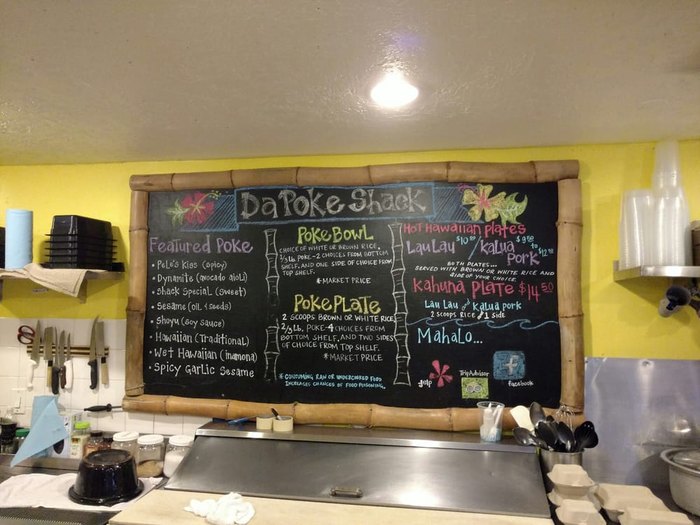 Da Poke Shack
Featured Poke
• Pele's Kiss (spicy)
• Dynamite (avocado aioli)
• Shack Special (sweet)
• Sesame (oil & seeds)
• Shoyu (soy sauce)
• Hawaiian (Traditional)
• Wet Hawaiian (inamona)
• Spicy Garlic Sesame
Poke Bowl
CHOICE OF WHITE OR BROWN RICE,
1/3 lb. POKE - 2 CHOICES FROM BOTTOM
SHELF, AND ONE SIDE OF CHOICE FROM
TOP SHELF.
* MARKET PRICE
Poke Plate
2 SCOOPS BROWN OR WHITE RICE,
2/3 lb. POKE - 4 CHOICES FROM
BOTTOM SHELF, AND TWO SIDES
OF CHOICE FROM TOP SHELF.
* MARKET PRICE
* CONSUMING RAW OR UNDERCOOKED FOOD
INCREASES CHANCES OF FOOD POISONING.
Hot Hawaiian Plates
Lau Lau / Kalua
Pork
BOTH PLATES...
SERVED WITH BROWN OR WHITE RICE AND
SIDE OF YOUR CHOICE.
Kahuna Plate $14.50
Lau Lau and Kalua pork
2 Scoops Rice / 1 side
Mahalo...
yelp
TripAdvisor
f
facebook